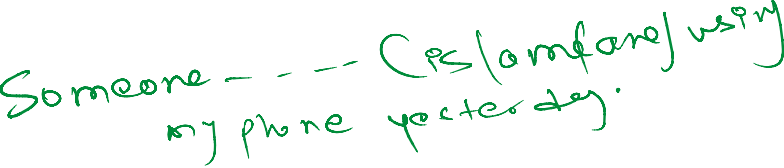 Someone ----- (is/am/are) using
my phone yesterday.